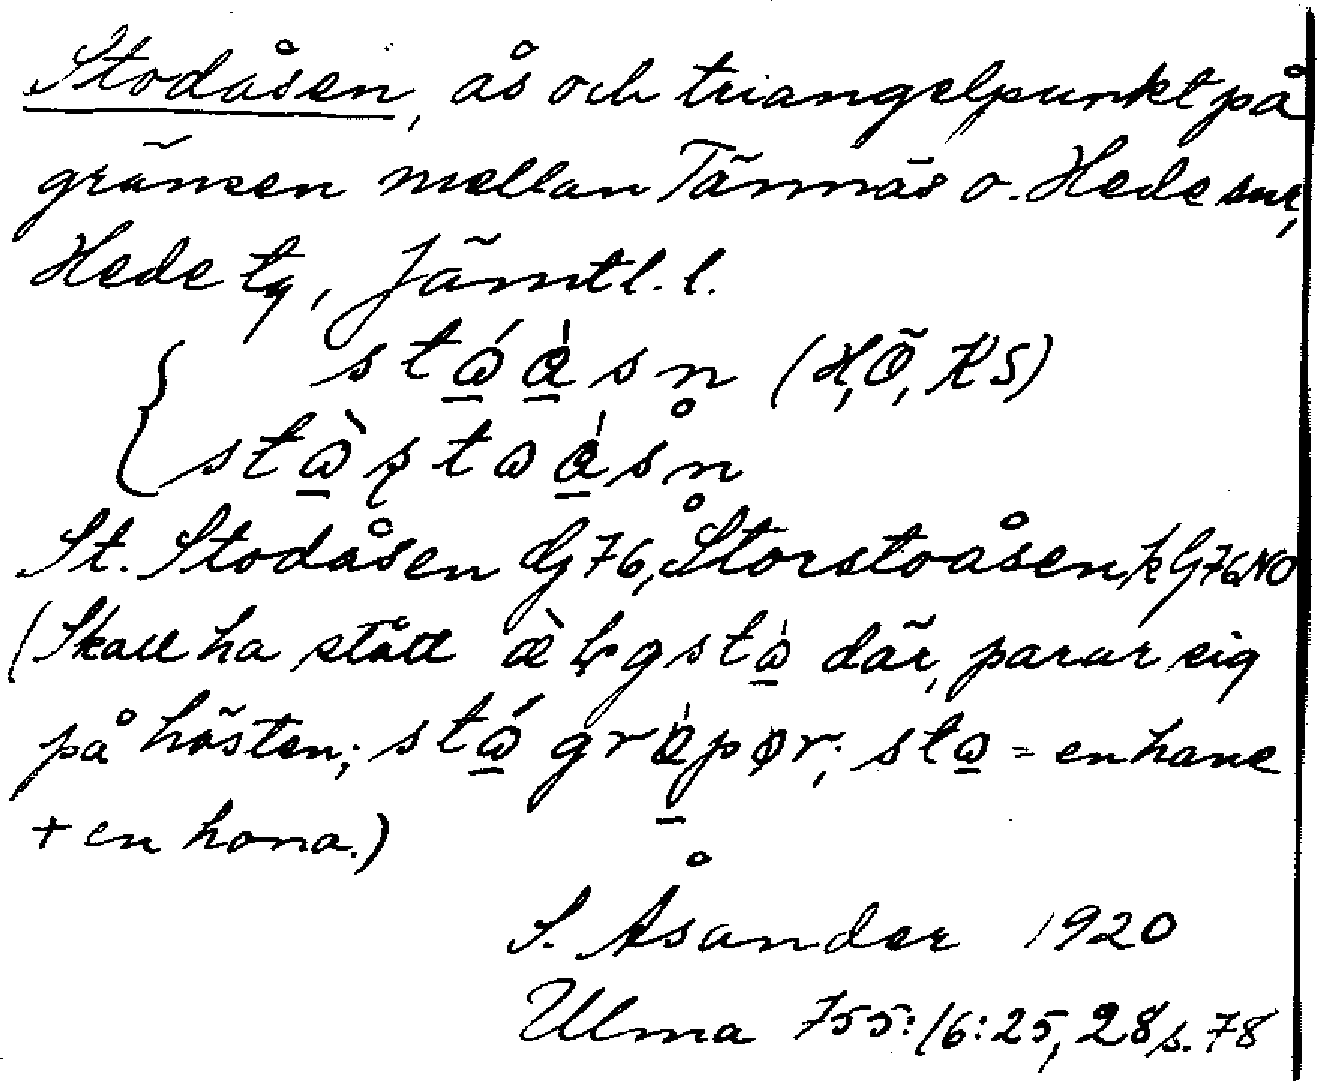 Stodåsen, ås och triangelpunkt på
gränsen mellan Tännäs o. Hede snr,
Hede tg, Jämtl. l.
(H, Ö, KS)
St. Stodåsen G76, Storstoåsen, k G76NO
(Skall ha stått där, parar sig
på hösten; = en hane
+ en hona.)
S. Åsander 1920
Ulma 755:16:25, 28 s. 78